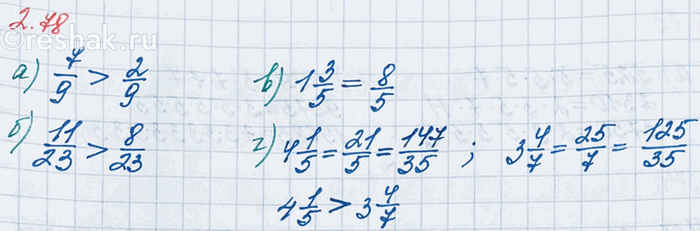 2.78
reshak.ru
а) 7/9 > 2/9
б) 11/23 > 8/23
в) 1 3/5 = 8/5
г) 4 1/5 = 21/5 = 147/35 ; 3 4/7 = 25/7 = 125/35
4 1/5 > 3 4/7